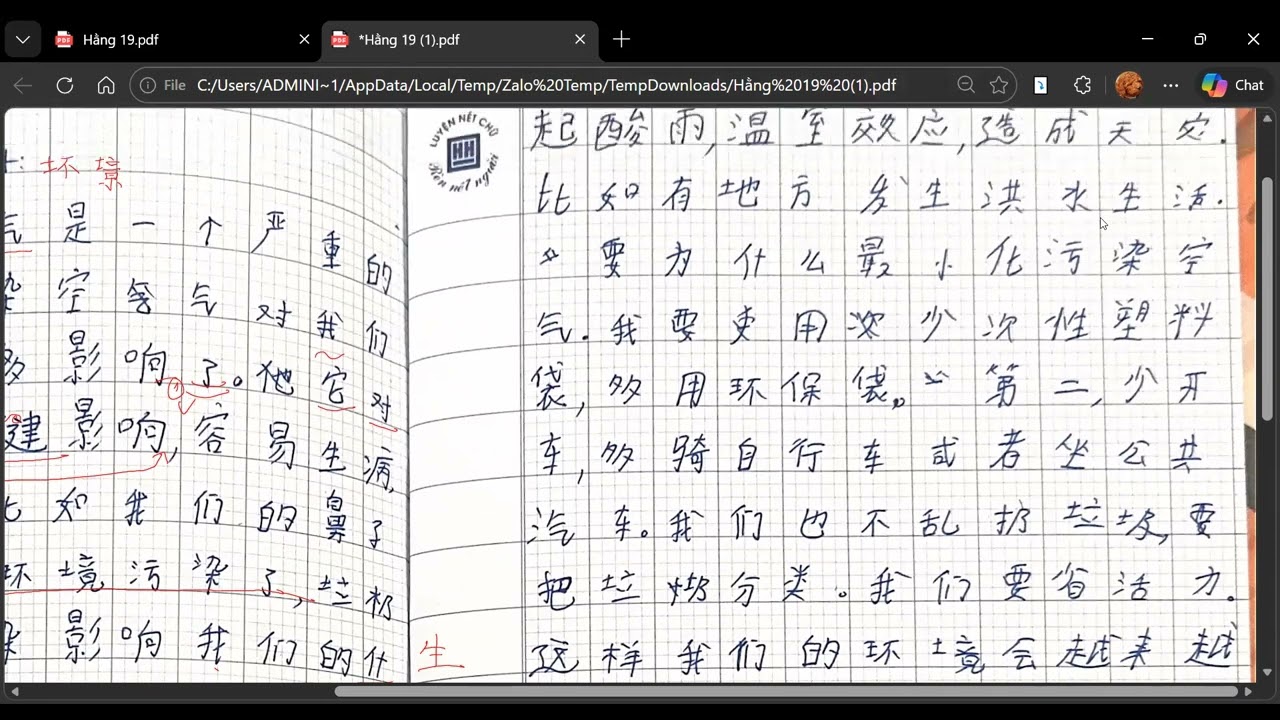 Hằng 19.pdf
*Hằng 19 (1).pdf
File C:/Users/ADMINI~1/AppData/Local/Temp/Zalo%20Temp/TempDownloads/Hằng%2019%20(1).pdf
Chat
坏境
气是一个严重的
染空气对我们
影响了。它对
建影响,容易生病,
比如我们的鼻子
环境污染了,垃圾
影响我们的什
生
LUYỆN NÉT CHỮ
HH
Rèn nết người
起酸雨,温室效应,造成天灾.
比如有地方发生洪水生活.
要为什么最小化污染空
气.我要使用次少次性塑料
袋,多用环保袋。第二,少开
车,多骑自行车或者坐公共
汽车。我们也不乱扔垃圾,要
把垃圾分类。我们要省活力.
这样我们的环境会越来越